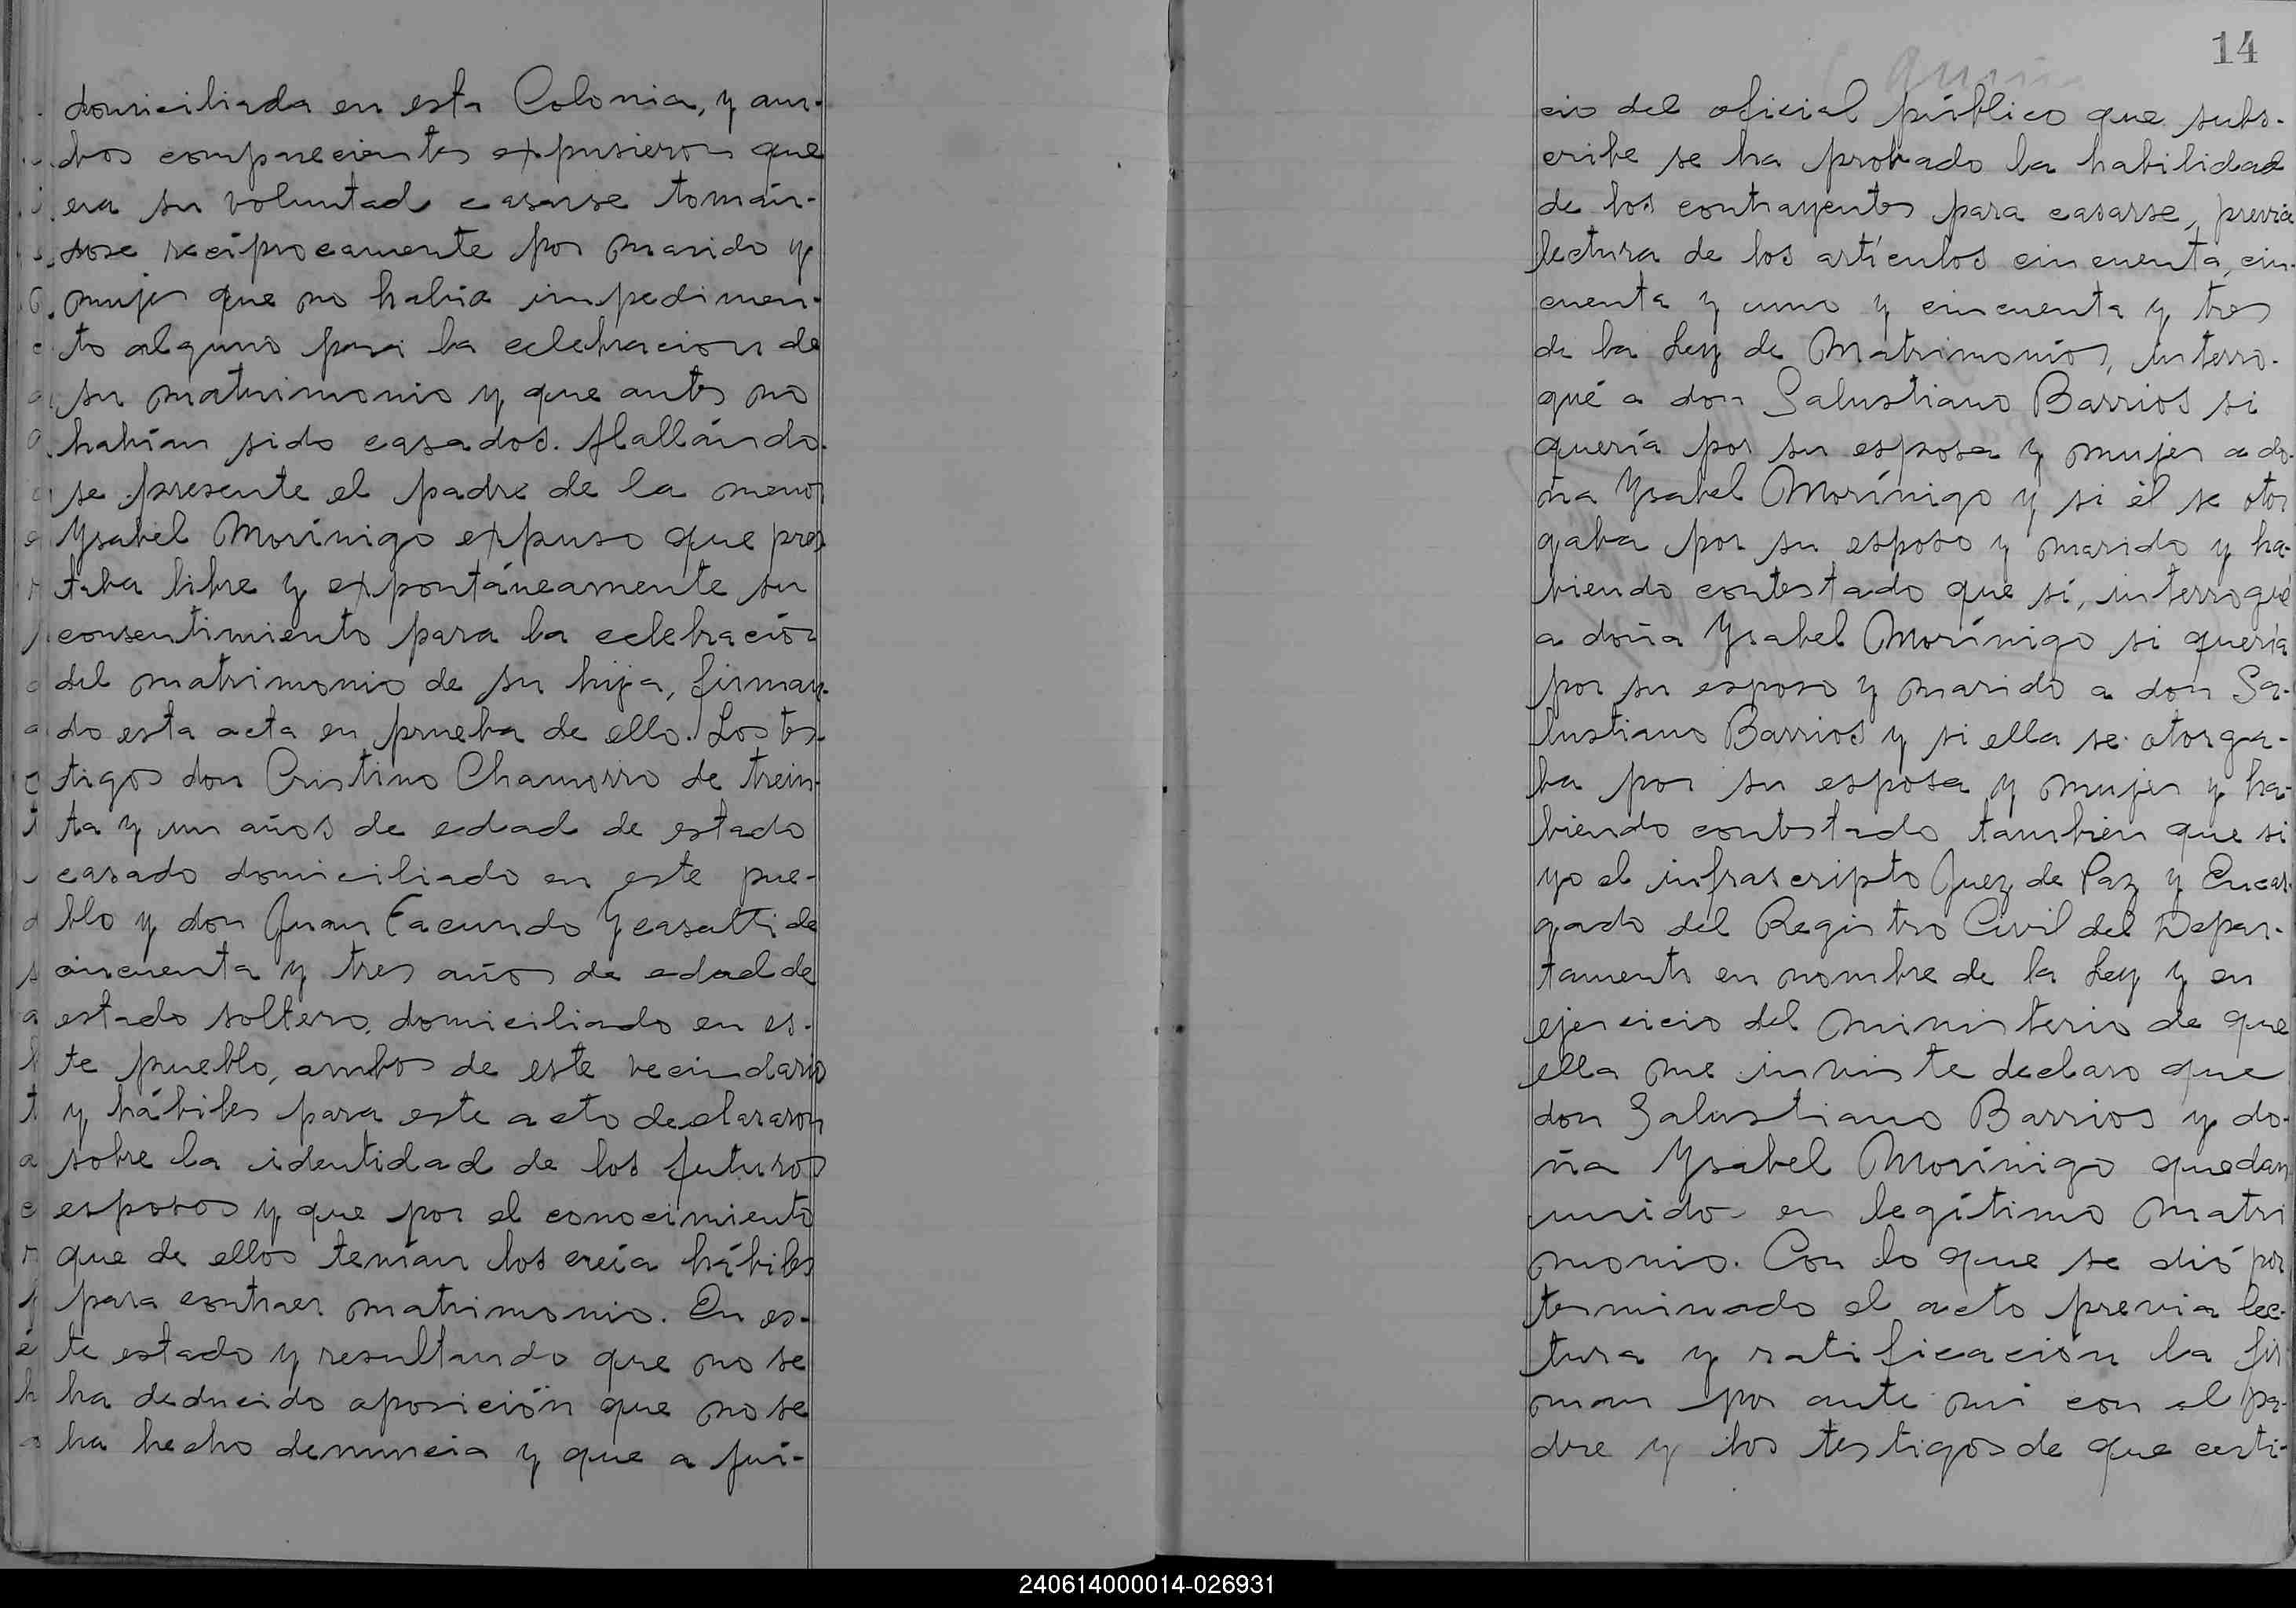 domiciliada en esta Colonia, y am-
bos comparecientes expusieron que
era su voluntad casarse tomán-
dose recíprocamente por marido y
mujer que no había impedimen-
to alguno para la celebracion de
su matrimonio y que antes no
habían sido casados. Hallándo-
se presente el padre de la menor
Ysabel Morínigo expuso que pres
taba libre y expontáneamente su
consentimiento para la celebración
del matrimonio de su hija, firman-
do esta acta en prueba de ello. Los tes-
tigos don Cristino Chamorro de trein-
ta y un años de edad de estado
casado domiciliado en este pue-
blo y don Juan Facundo Ycasatti de
cincuenta y tres años de edad de
estado soltero, domiciliado en es-
te pueblo, ambos de este vecindario
y hábiles para este acto declararon
sobre la identidad de los futuros
esposos y que por el conocimiento
que de ellos tenían los creía hábiles
para contraer matrimonio. En es-
te estado y resultando que no se
ha deducido aposición que no se
ha hecho denuncia y que a jui-
14
cio del oficial público que subs-
cribe se ha probado la habilidad
de los contrayentes para casarse, previa
lectura de los artículos cincuenta, cin-
cuenta y uno y cincuenta y tres
de la Ley de Matrimonios, interro-
gué a don Salustiano Barrios si
quería por su esposa y mujer a do-
ña Ysabel Morínigo y si él se otor
gaba por su esposo y marido y ha-
biendo contestado que sí, interrogué
a doña Ysabel Morínigo si quería
por su esposo y marido a don Sa-
lustiano Barrios y si ella se otorga-
ba por su esposa y mujer y ha-
biendo contestado tambien que si
yo el infrascripto Juez de Paz y Encar-
gado del Registro Civil del Depar-
tamento en nombre de la Ley y en
ejercicio del ministerio de que
ella me inviste declaro que
don Salustiano Barrios y do-
ña Ysabel Morínigo quedan
unidos en legítimo matri
monio. Con lo que se dió por
terminado el acto previa lec-
tura y ratificación la fir
man por ante mi con el pa-
dre y los testigos de que certi-
240614000014-026931